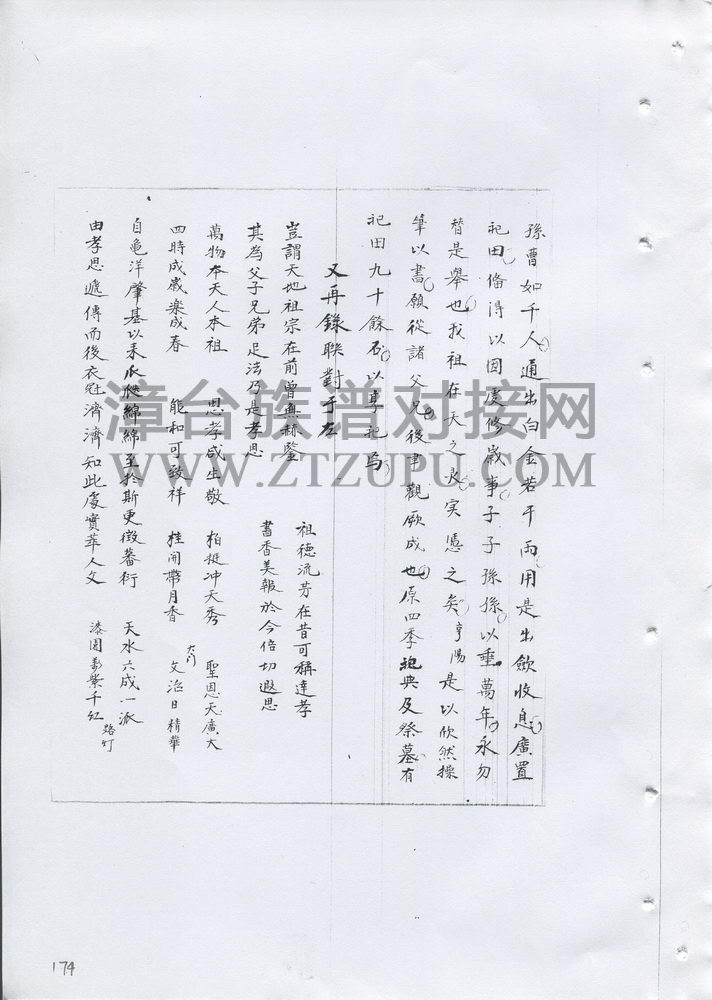 孫曹如千人通出白金若干両用是出歛收息廣置
祀田俻得以因處修歲事子子孫孫以垂萬年永勿
替是舉也我祖在天之灵实憑之矣亨陽是以欣然操
筆以書願從諸父兄後聿觀厥成也原四季祀典及祭墓有
祀田九十餘石以專祀焉
又再錄聯對于左
豈謂天地祖宗在前曾無赫鑒
其為父子兄弟足法乃是孝思
祖德流芳在昔可稱達孝
書香美報於今倍切遐思
萬物本天人本祖
四時成歲樂成春
思孝咸生敬
能和可致祥
柏挺冲天秀
桂開帶月香
大门
聖恩天廣大
文治日精華
自龟洋肇基以来瓜瓞綿綿至於斯更徵蕃衍
由孝思遞傳而後衣冠濟濟如此處實萃人文
天水六成一派
漆園影紫千紅
路灯
漳台族谱对接网
WWW.ZTZUPU.COM
174